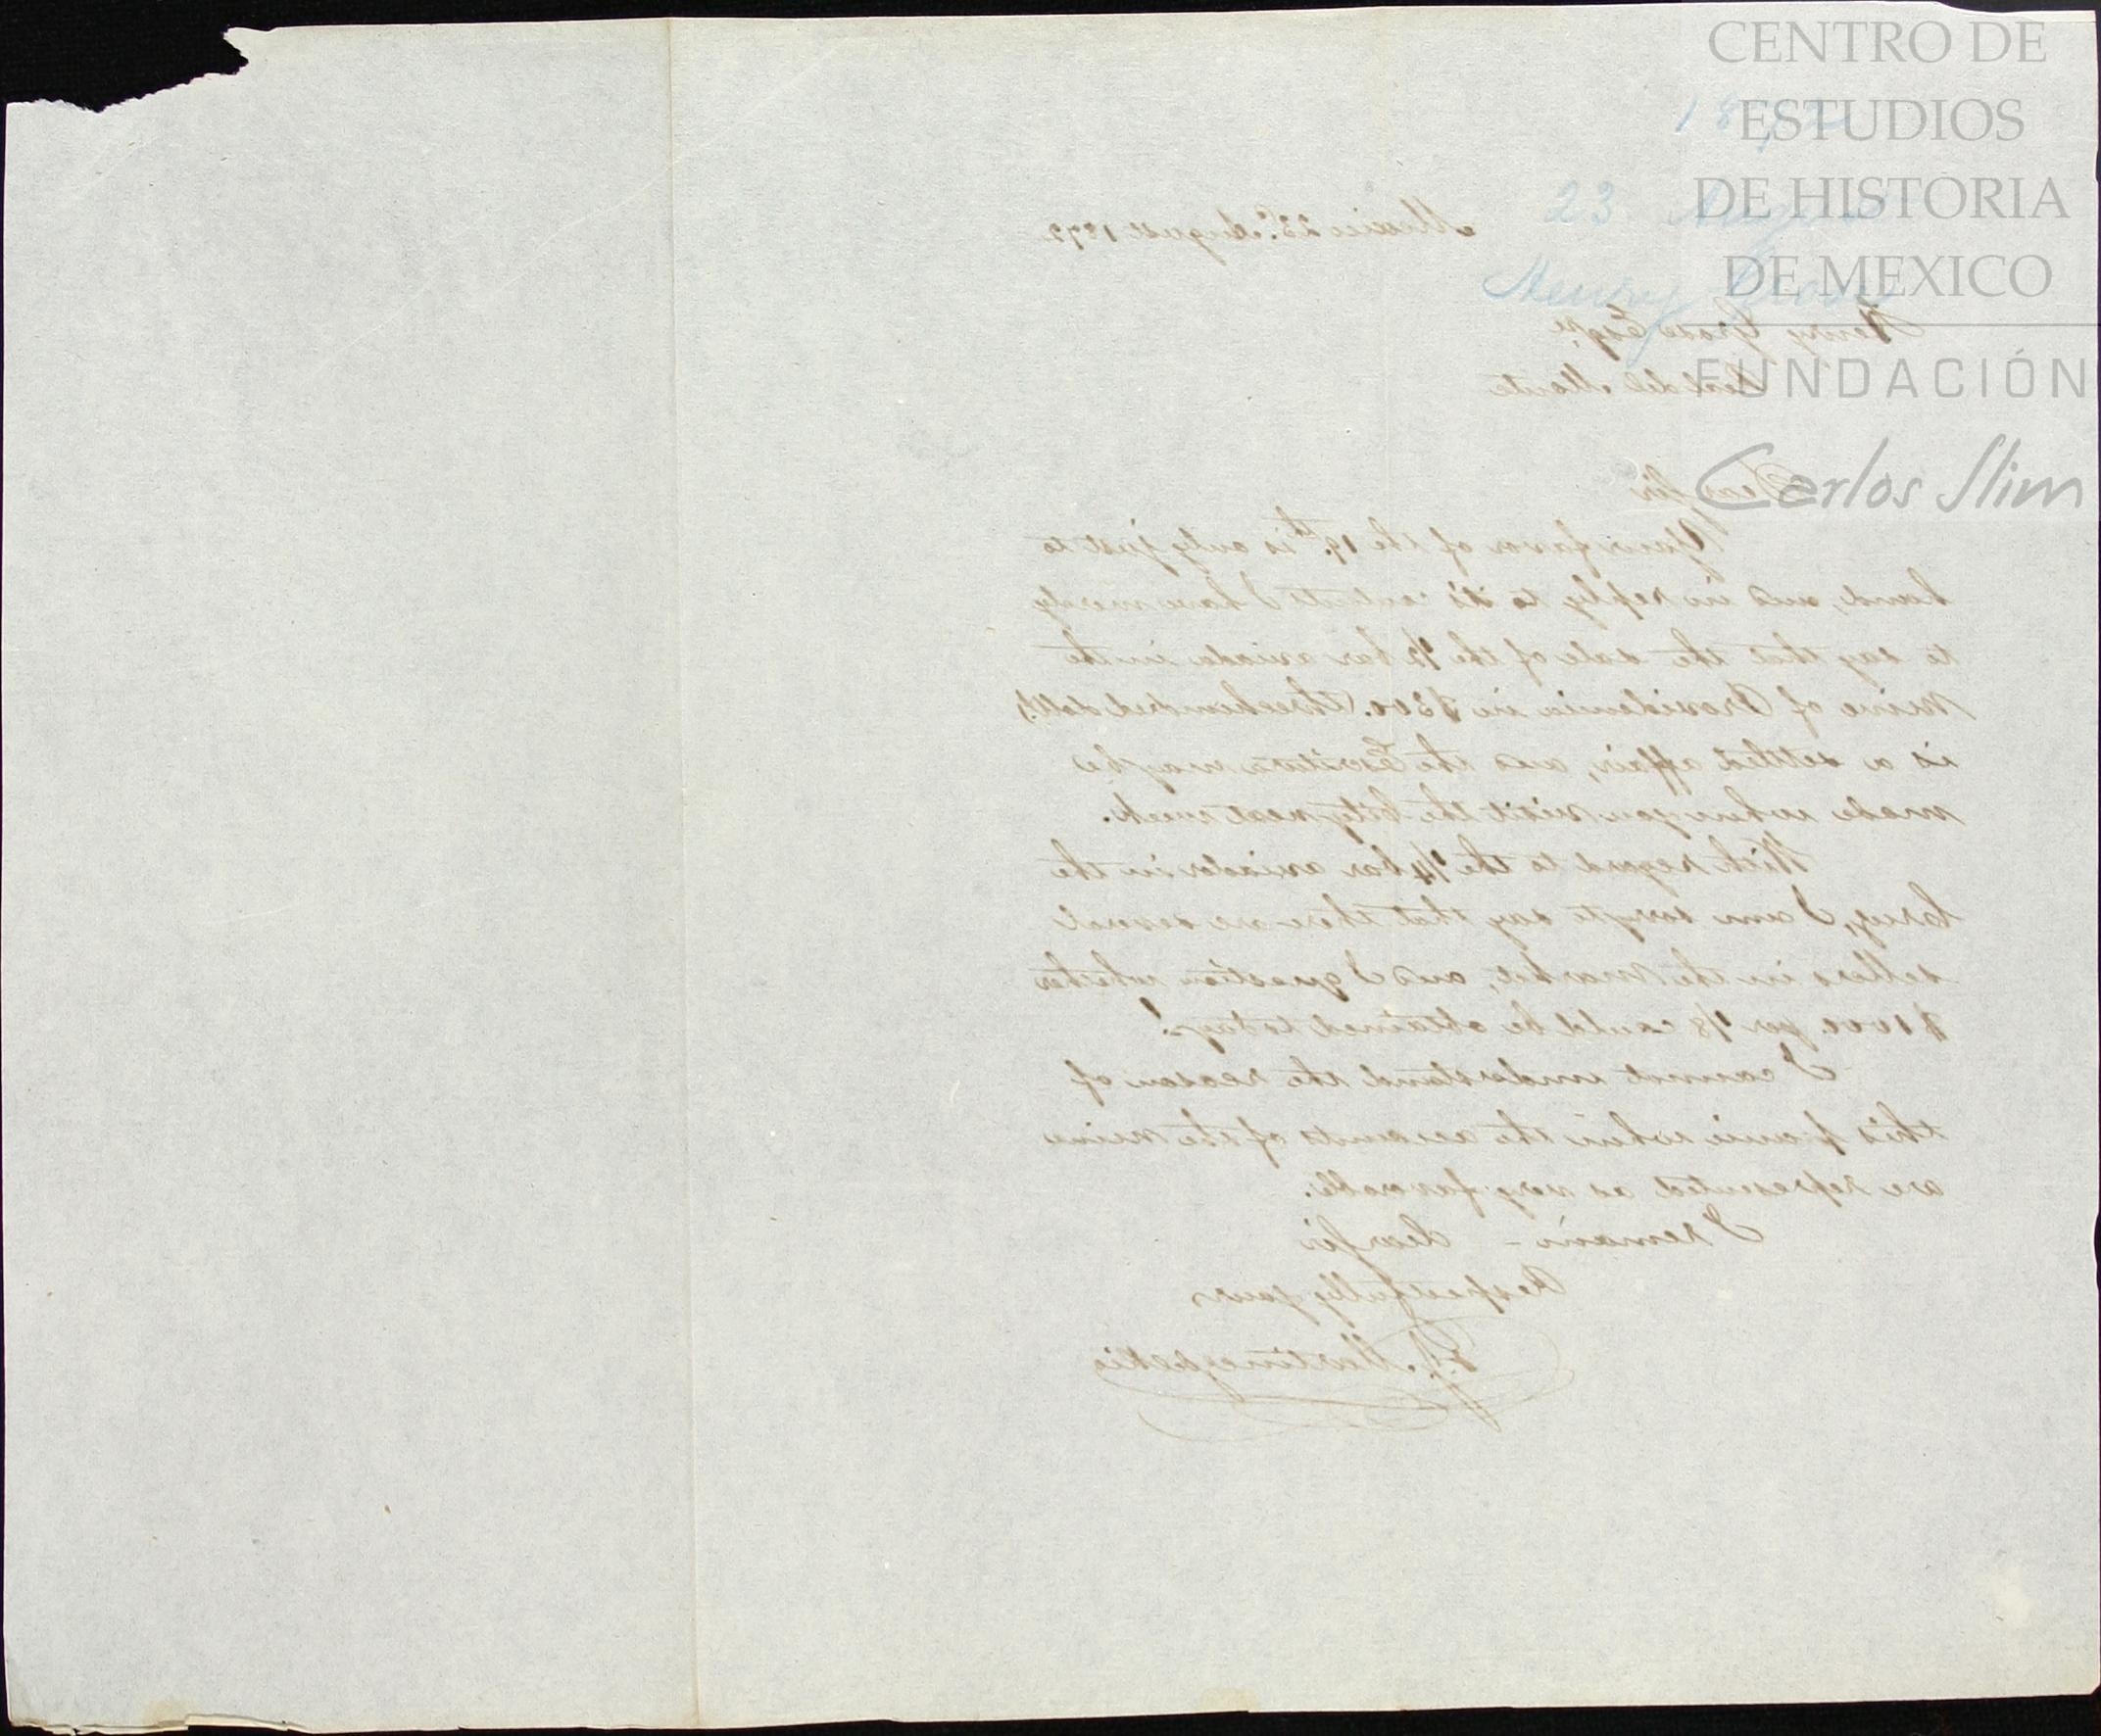 CENTRO DE
ESTUDIOS
DE HISTORIA
DE MEXICO
FUNDACIÓN
Carlos Slim
1872
23 August
Henry Grose
Mexico 23d. August 1872
Henry Grose Esqre.
Real del Monte
Dear Sir
Your favor of the 19th is only just to
hand, and in reply to its contents I have merely
to say that the sale of the 1/2 bar aviada in the
Mine of Providencia in $300. threehundred doll
is a settled affair, and the Escritura may be
made when you visit the City next week.
With regard to the 1/4 bar aviador in the
I am sorry to say that there are several
sellers in the Market, and I question whether
$1000. per 1/8 could be obtained today!
I cannot understand the reason of
this panic when the accounts of the Mine
are represented as very favorable.
I remain - dear Sir
Respectfully yours